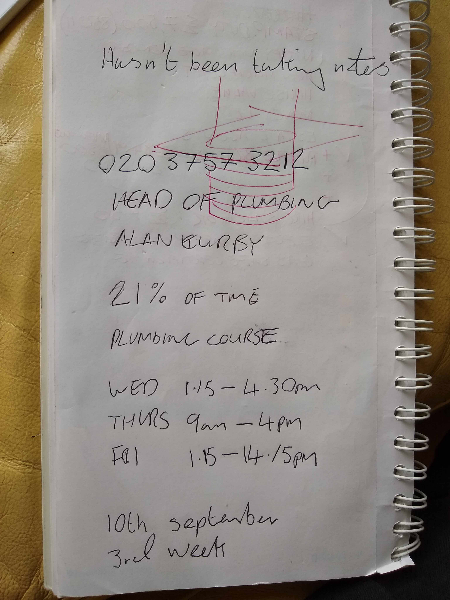 Hasn't been taking notes
020 3757 3212
HEAD OF PLUMBING
ALAN
21% OF TIME
PLUMBING COURSE
WED 1.15 - 4.30pm
THURS 9am - 4pm
FRI 1.15 - 14.15pm
10th september
3rd week